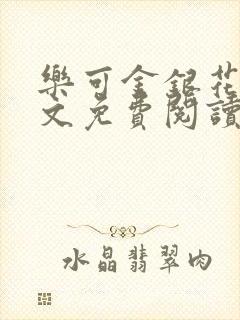 樂可金銀花
文免費閱讀
水晶翡翠肉